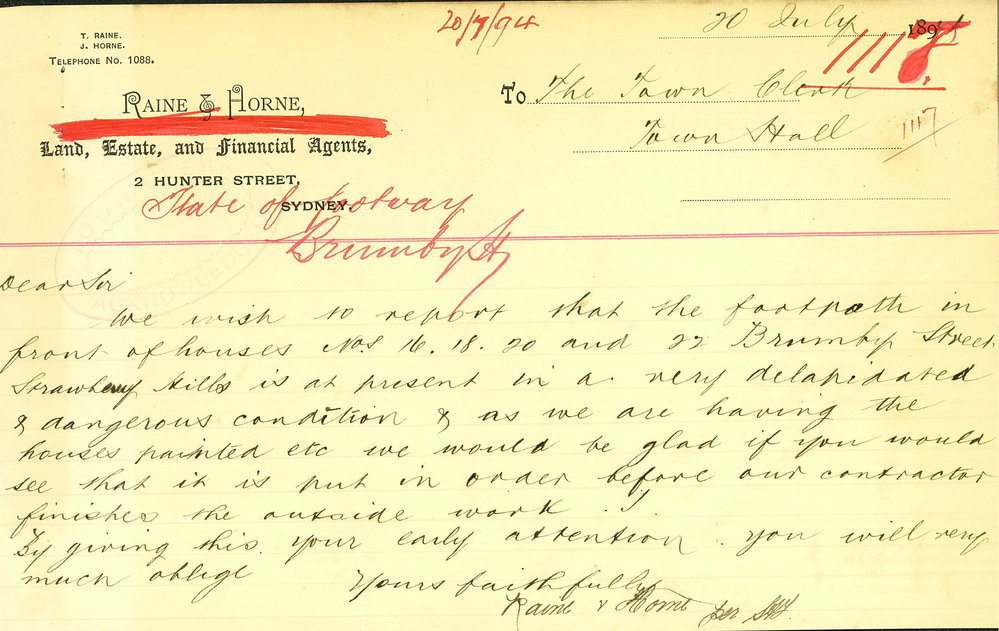 T. RAINE.
J. HORNE.
TELEPHONE No. 1088.
RAINE & HORNE,
Land, Estate, and Financial Agents,
2 HUNTER STREET,
SYDNEY.
20/7/94
20 July 1894
1117
To The Town Clerk
Town Hall
1117
State of footway
Brumby St
Dear Sir
We wish to report that the footpath in
front of houses Nos 16. 18. 20 and 22 Brumby Street
Strawberry Hills is at present in a very delapidated
& dangerous condition & as we are having the
houses painted etc we would be glad if you would
see that it is put in order before our contractor
finishes the outside work.
By giving this your early attention you will very
much oblige
Yours faithfully
Raine & Horne per